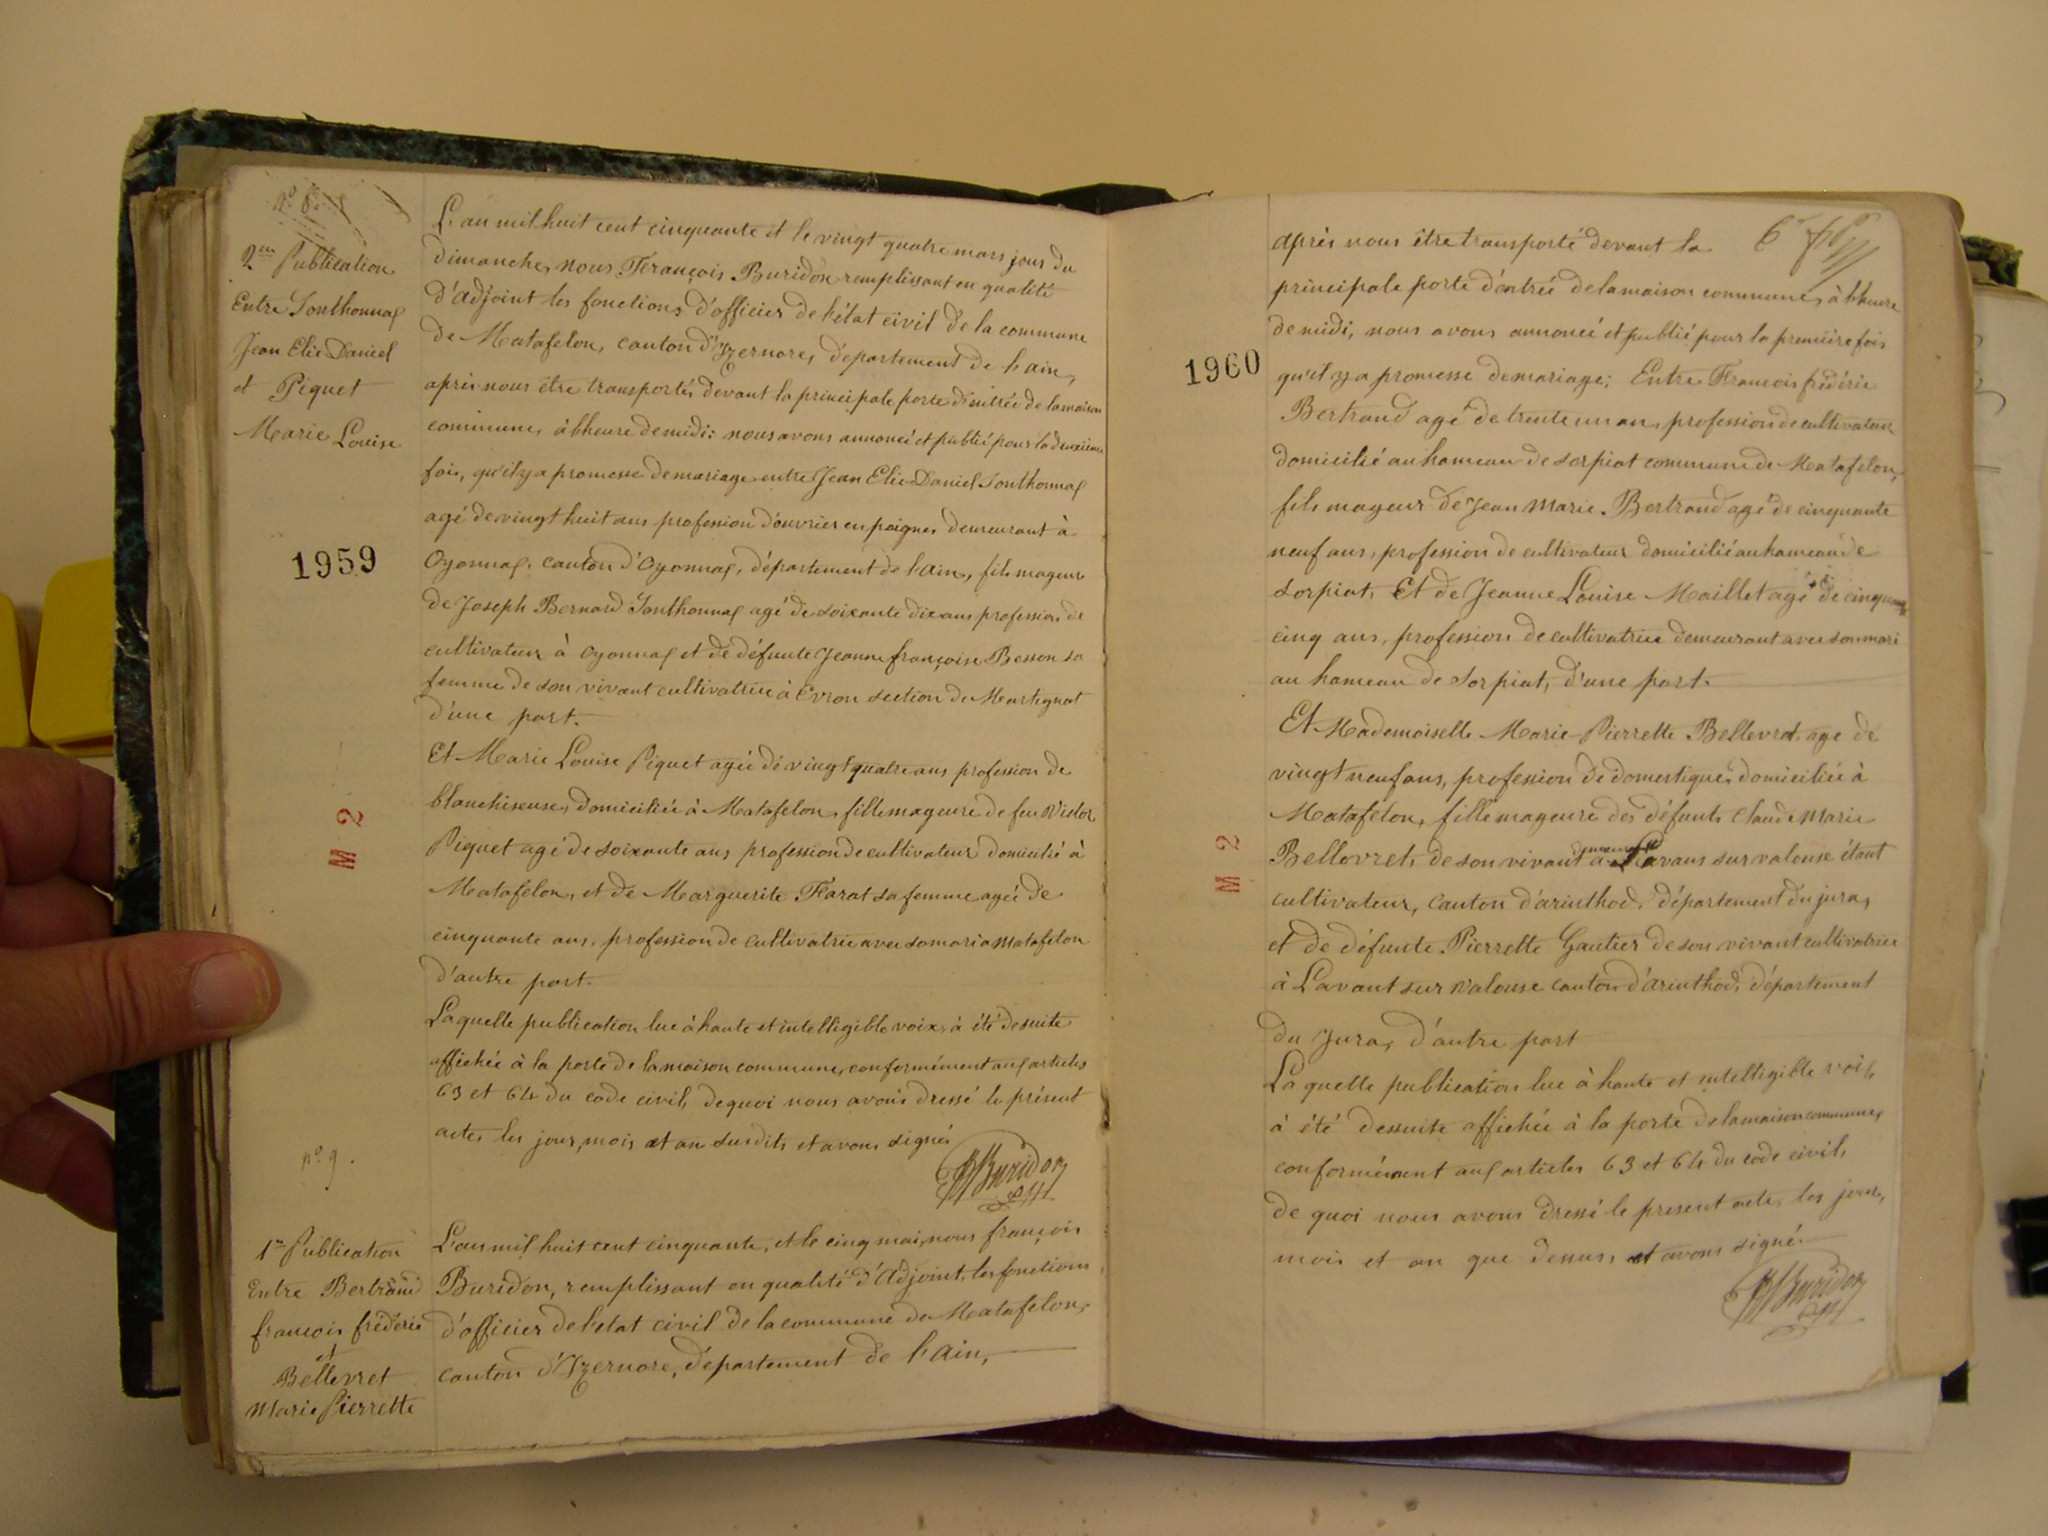 n° 8.
2me Publication
Entre Sonthonnax
Jean Elie Daniel
et Piquet
Marie Louise
1959
M 2
L'an mil huit cent cinquante et le vingt quatre mars jour du
dimanche, nous François Buridon remplissant en qualité
d'adjoint les fonctions d'officier de l'état civil de la commune
de Matafelon, canton d'Izernore, département de l'ain,
après nous être transportés devant la principale porte d'entrée de la maison
commune, à l'heure de midi: nous avons annoncé et publié pour la deuxième
fois, qu'il y a promesse de mariage entre Jean Elie Daniel Sonthonnax
agé de vingt huit ans profession d'ouvrier en peignes demeurant à
Oyonnax, canton d'Oyonnax, département de l'ain, fils mageur
de Joseph Bernard Sonthonnax agé de soixante dix ans profession de
cultivateur à Oyonnax et de défunte Jeanne françoise Besson sa
femme de son vivant cultivatrice à Evron section de Martignat
d'une part.
Et Marie Louise Piquet agée de vingt quatre ans profession de
blanchiseuse, domiciliée à Matafelon, fille mageure de feu Victor
Piquet agé de soixante ans profession de cultivateur domicilié à
Matafelon, et de Marguerite Farat sa femme agée de
cinquante ans, profession de cultivatrice avec so mari a Matafelon
d'autre part.
Laquelle publication lue à haute et intelligible voix, à été desuite
affichée à la porte de la maison commune, conformément aux articles
63 et 64 du code civil, de quoi nous avons dressé le présent
acte, les jour, mois et an susdits et avons signé
Buridon
adjt
n° 9.
1re Publication
Entre Bertrand
françois frédéric
et
Bellevret
Marie Pierrette
L'an mil huit cent cinquante, et le cinq mai, nous françois
Buridon, remplissant en qualité d'Adjoint, les fonctions
d'officier de l'etat civil de la commune de Matafelon,
canton d'Izernore, département de l'Ain,
6e f
1960
M 2
après nous être transporté devant la
principale porte d'entrée de la maison commune, à l'heure
de midi, nous avons annoncé et publié pour la première fois
qu'il y a promesse de mariage; Entre François frédéric
Bertrand agé de trente un an, profession de cultivateur
domicilié au hameau de sorpiat commune de Matafelon,
fils mageur de Jean Marie Bertrand agé de cinquante
neuf ans, profession de cultivateur domicilié au hameau de
sorpiat, Et de Jeanne Louise Maillet agé de cinquante
cinq ans, profession de cultivatrice demeurant avec son mari
au hameau de Sorpiat, d'une part.
Et Mademoiselle Marie-Pierrette Bellevret age de
vingt neuf ans, profession de domestique, domiciliée à
Matafelon, fille mageure des défunts Claude Marie
Bellevret, de son vivant à Lavans sur valouse étant
cultivateur, canton d'arinthod, département du jura,
et de défunte Pierrette Gautier de son vivant cultivatrice
à Lavant sur Valouse canton d'arinthod, département
du Jura, d'autre part
Laquelle publication lue à haute et intelligible voix,
à été dessuite affichée à la porte de la maison commune,
conformément aux articles 63 et 64 du code civil,
de quoi nous avons dressé le present acte, les jour,
mois et an que dessus, et avons signé.
Buridon
adjt